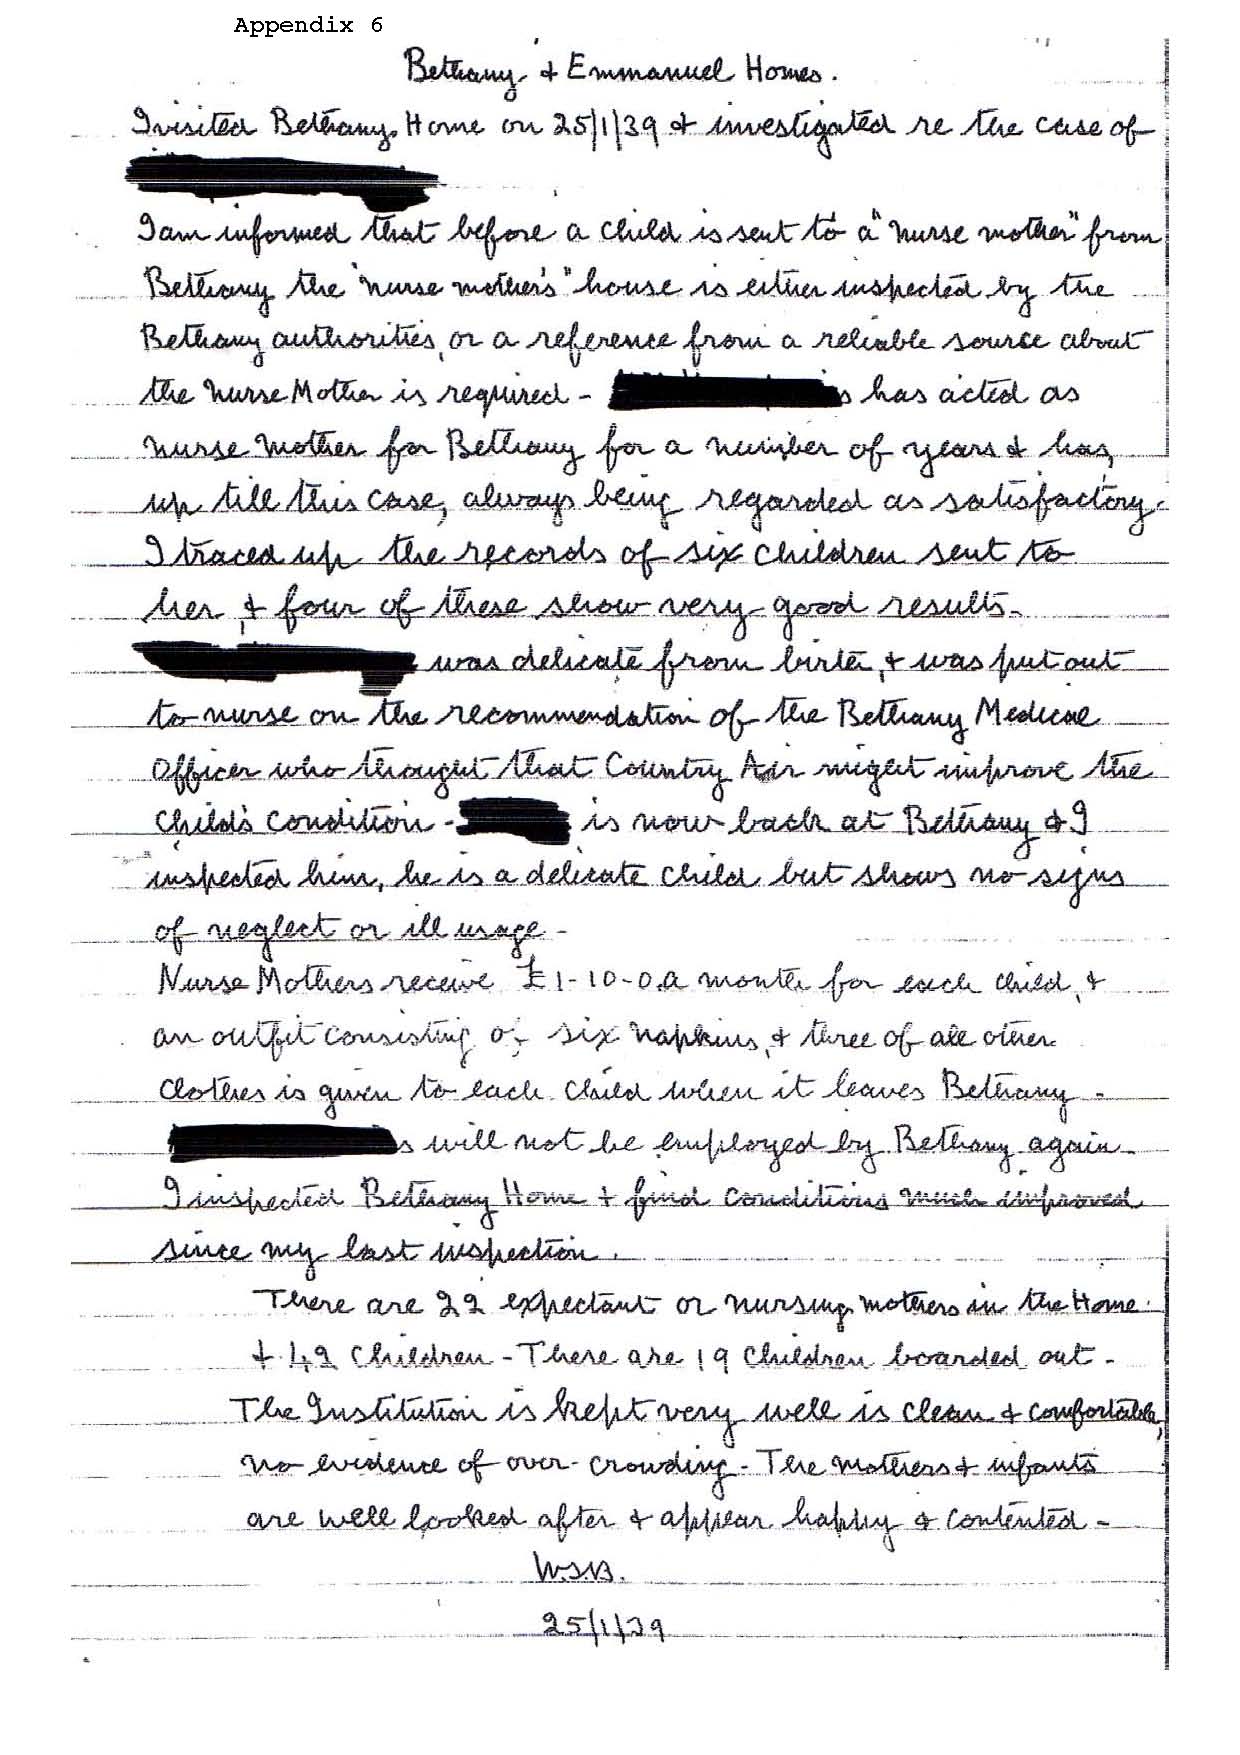 Appendix 6
Bethany & Emmanuel Homes.
I visited Bethany Home on 25/1/39 & investigated re the case of
I am informed that before a child is sent to a "nurse mother" from
Bethany the "nurse mother's" house is either inspected by the
Bethany authorities, or a reference from a reliable source about
the Nurse Mother is required - s has acted as
nurse mother for Bethany for a number of years & has,
up till this case, always being regarded as satisfactory.
I traced up the records of six children sent to
her, & four of these show very good results.
was delicate from birth, & was put out
to nurse on the recommendation of the Bethany Medical
Officer who thought that Country Air might improve the
child's condition - is now back at Bethany & I
inspected him, he is a delicate child but shows no signs
of neglect or ill usage -
Nurse Mothers receive £1-10-0 a month for each child, &
an outfit consisting of six napkins, & three of all other
clothes is given to each child when it leaves Bethany -
s will not be employed by Bethany again.
I inspected Bethany Home & find conditions much improved
since my last inspection.
There are 22 expectant or nursing mothers in the Home
& 42 children - There are 19 children boarded out -
The Institution is kept very well is clean & comfortable,
no evidence of over-crowding - The mothers & infants
are well looked after & appear happy & contented -
25/1/39